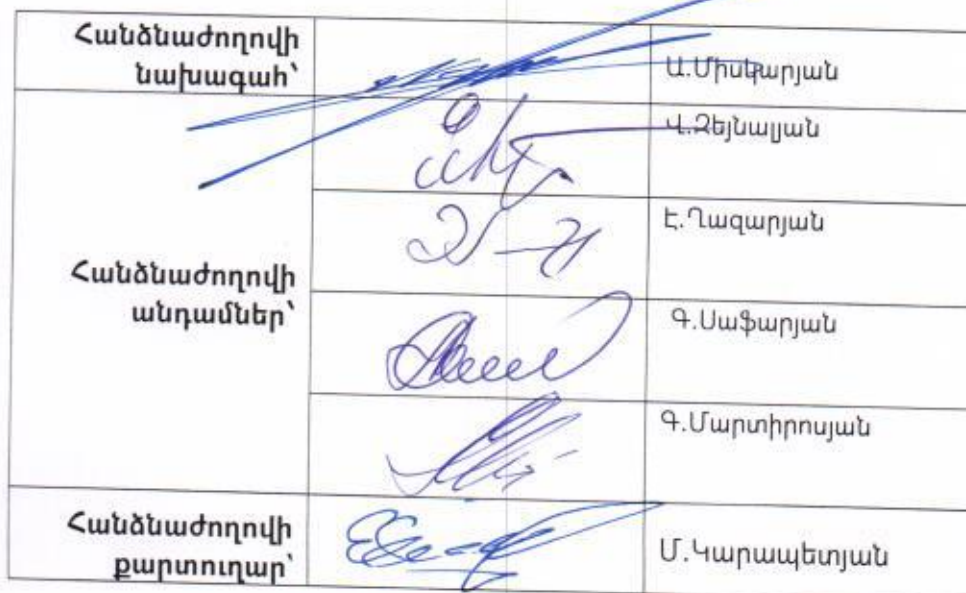 Հանձնաժողովի
նախագահ՝
Ա.Միսկարյան
Հանձնաժողովի
անդամներ՝
Վ.Զեյնալյան
Է.Ղազարյան
Գ.Սաֆարյան
Գ.Մարտիրոսյան
Հանձնաժողովի
քարտուղար՝
Մ.Կարապետյան